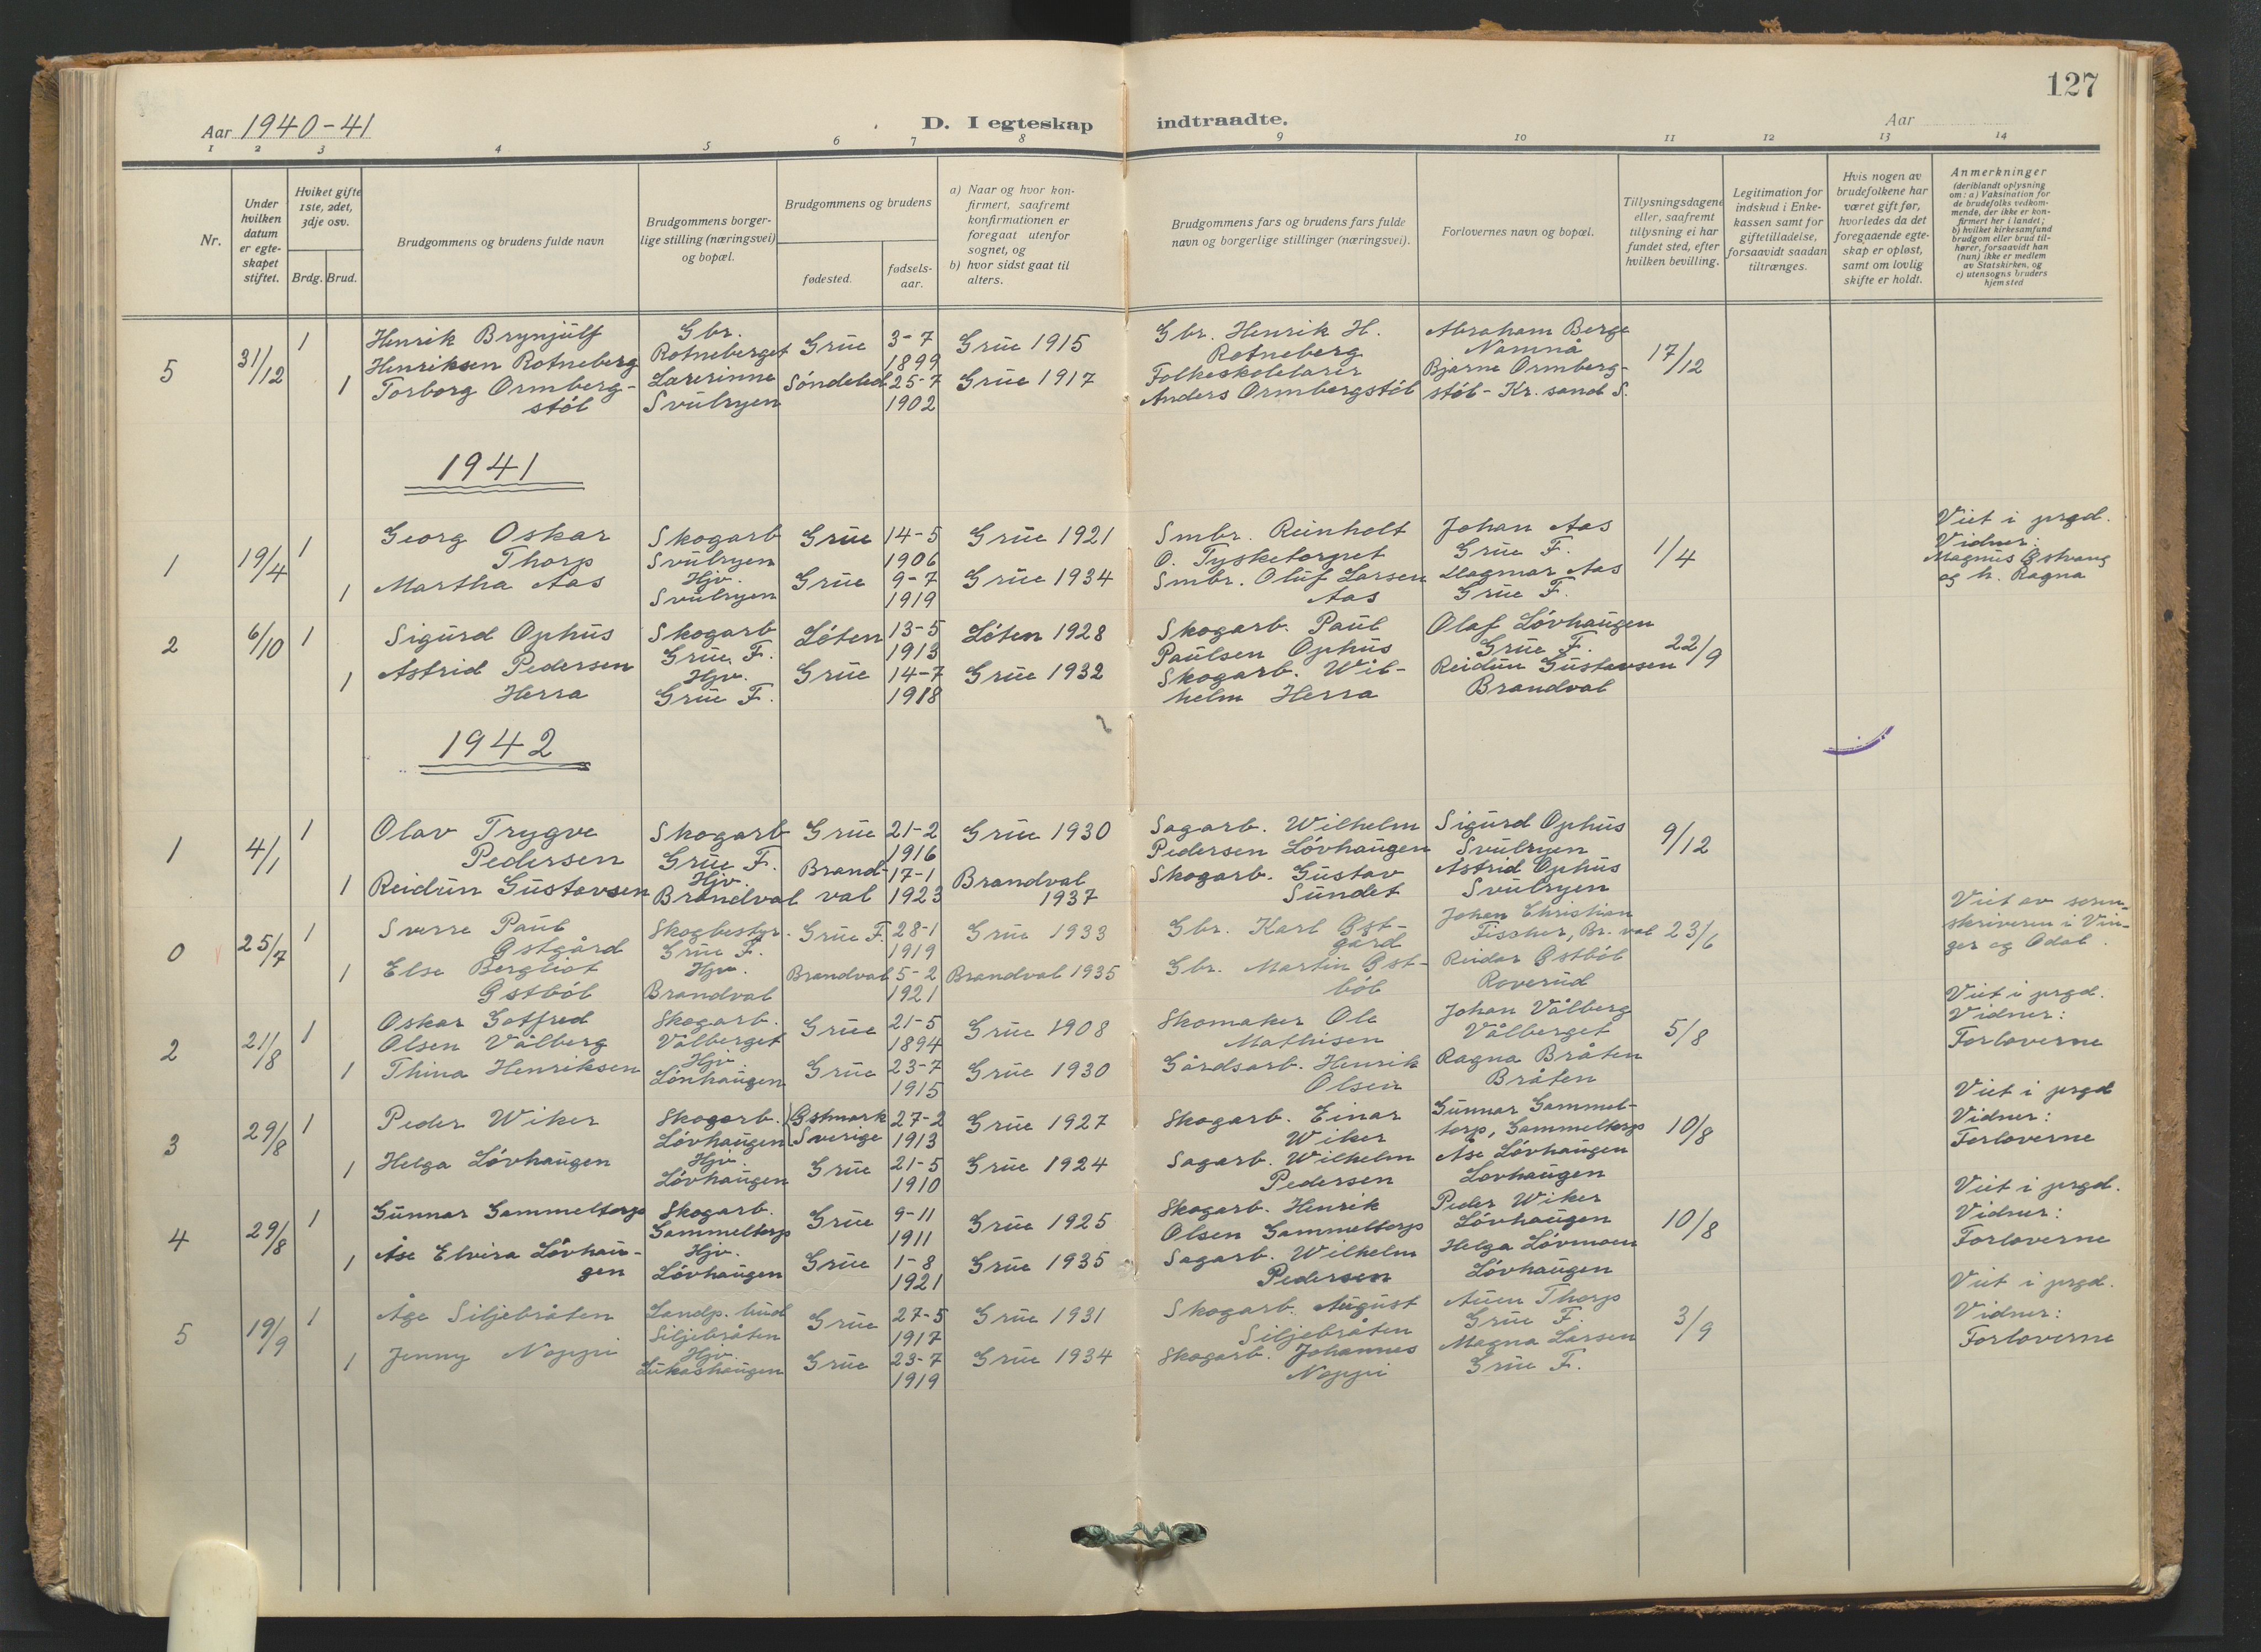 127
Aar 1940-41
D. I egteskap indtraadte.
Aar
1 2 3 4 5 6 7 8 9 10 11 12 13 14
Nr.
Under
hvilken
datum
er egte-
skapet
stiftet.
Hvilket gifte
1ste, 2det,
3dje osv.
Brdg. Brud.
Brudgommens og brudens fulde navn
Brudgommens borger-
lige stilling (næringsvei)
og bopæl.
Brudgommens og brudens
fødested.
fødsels-
aar.
a) Naar og hvor kon-
firmert, saafremt
konfirmationen er
foregaat utenfor
sognet, og
b) hvor sidst gaat til
alters.
Brudgommens fars og brudens fars fulde
navn og borgerlige stillinger (næringsvei).
Forlovernes navn og bopæl.
Tillysningsdagene
eller, saafremt
tillysning ei har
fundet sted, efter
hvilken bevilling.
Legitimation for
indskud i Enke-
kassen samt for
giftetilladelse,
forsaavidt saadan
tiltrænges.
Hvis nogen av
brudefolkene har
været gift før,
hvorledes da det
foregaaende egte-
skap er opløst,
samt om lovlig
skifte er holdt.
Anmerkninger
(deriblandt oplysning
om: a) Vaksination for
de brudefolks vedkom-
mende, der ikke er kon-
firmert her i landet;
b) hvilket kirkesamfund
brudgom eller brud til-
hører, forsaavidt han
(hun) ikke er medlem
av Statskirken, og
c) utensogns bruders
hjemsted
5 31/12 1
Henrik Brynjulf
Henriksen Rotneberg
Gbr.
Rotneberget
Grue
3-7
1899
Grue 1915
Gbr. Henrik H.
Rotneberg
Abraham Berge
Namnå
17/12
1
Torborg Ormberg-
stöl
Lærerinne
Svulryen
Söndeled
25-7
1902
Grue 1917
Folkeskolelærer
Anders Ormbergstöl
Bjarne Ormberg-
stöl - Kr. sand S.
1941
1 19/4 1
Georg Oskar
Thorp
Skogarb
Svulryen
Grue
14-5
1906
Grue 1921
Smbr. Reinholt
O. Tysketorpet
Johan Aas
Grue F.
1/4
Viet i prgd.
Vidner:
Magnus Østvang
og h. Ragna
1
Martha Aas
Hjv.
Svulryen
Grue
9-7
1919
Grue 1934
Smbr. Oluf Larsen
Aas
Dagmar Aas
Grue F.
2 6/10 1
Sigurd Ophus
Skogarb
Grue F.
Löten
13-5
1913
Löten 1928
Skogarb. Paul
Paulsen Ophus
Olaf Lövhaugen
Grue F.
22/9
1
Astrid Pedersen
Herra
Hjv.
Grue F.
Grue
14-7
1918
Grue 1932
Skogarb. Wil-
helm Herra
Reidun Gustavsen
Brandval
1942
1 4/1 1
Olav Trygve
Pedersen
Skogarb
Grue F.
Grue
21-2
1916
Grue 1930
Sagarb. Wilhelm
Pedersen Lövhaugen
Sigurd Ophus
Svulryen
9/12
1
Reidun Gustavsen
Hjv.
Brandval
Brand-
val
17-1
1923
Brandval
1937
Skogarb. Gustav
Sundet
Astrid Ophus
Svulryen
0 25/7 1
Sverre Paul
Østgård
Skogbestyr.
Grue F.
Grue F.
28-1
1919
Grue 1933
Gbr. Karl Øst-
gård
Johan Christian
Fischer, Br. val
23/6
Viet av soren-
skriveren i Vin-
ger og Odal.
1
Else Bergliot
Østböl
Hjv.
Brandval
Brandval
5-2
1921
Brandval 1935
Gbr. Martin Øst-
böl
Reidar Østböl
Roverud
2 21/8 1
Oskar Gotfred
Olsen Vålberg
Skogarb.
Vålberget
Grue
21-5
1894
Grue 1908
Skomaker Ole
Mathisen
Johan Vålberg
Vålberget
5/8
Viet i prgd.
Vidner:
Forloverne
1
Thina Henriksen
Hjv.
Lönhaugen
Grue
23-7
1915
Grue 1930
Gårdsarb. Henrik
Olsen
Ragna Bråten
Bråten
3 29/8 1
Peder Wiker
Skogarb.
Lövhaugen
Østmark
Sverige
27-2
1913
Grue 1927
Skogarb. Einar
Wiker
Gunnar Gammel-
torp, Gammeltorp
10/8
Viet i prgd
Vidner:
Forloverne
1
Helga Lövhaugen
Hjv.
Lövhaugen
Grue
21-5
1910
Grue 1924
Sagarb. Wilhelm
Pedersen
Åse Lövhaugen
Lovhaugen
4 29/8 1
Gunnar Gammeltorp
Skogarb.
Gammeltorp
Grue
9-11
1911
Grue 1925
Skogarb. Henrik
Olsen Gammeltorp
Peder Wiker
Lövhaugen
10/8
Viet i prgd.
Vidner:
Forloverne
1
Åse Elvira Lövhau-
gen
Hjv.
Lövhaugen
Grue
1-8
1921
Grue 1935
Sagarb. Wilhelm
Pedersen
Helga Lövmoen
Lövhaugen
5 19/9 1
Åge Siljebråten
Landp. bud
Siljebråten
Grue
27-5
1917
Grue 1931
Skogarb. August
Siljebråten
Auen Thorp
Grue F.
3/9
Viet i prgd.
Vidner:
Forloverne
1
Jenny Noppi
Hjv.
Lukashaugen
Grue
23-7
1919
Grue 1934
Skogarb. Johannes
Noppi
Magna Larsen
Grue F.